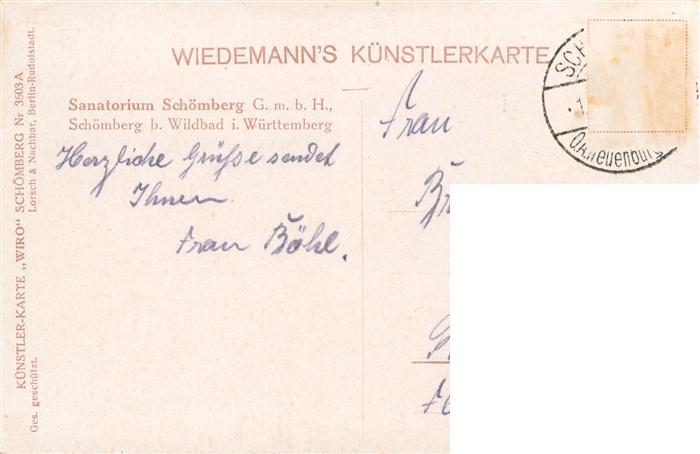 WIEDEMANN'S KÜNSTLERKARTE
Sanatorium Schömberg G. m. b H.,
Schömberg b. Wildbad i. Württemberg
Herzliche Grüße sendet
Ihnen
Frau Böhl.
Frau
KÜNSTLER-KARTE „WIRO" SCHÖMBERG Nr. 3603 A
Lorsch & Nachbar, Berlin-Rudolstadt.
Ges. geschützt.